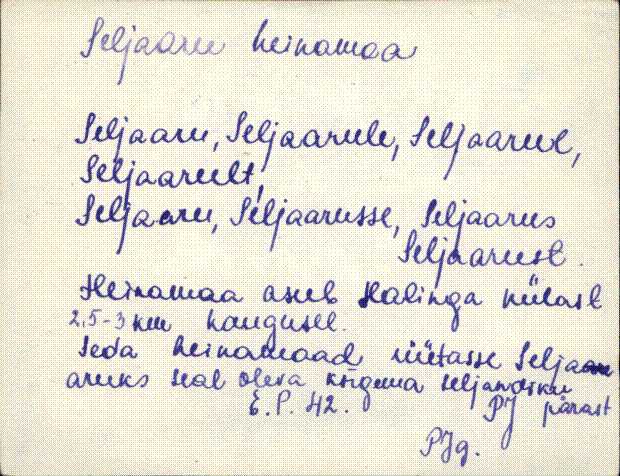 Seljaaru heinamaa
Seljaaru, Seljaarule, Seljaarul,
Seljaarult,
Seljaaru, Seljaarusse, Seljaarus
Seljaarust.
Heinamaa asub Kalinga külast
2,5-3 km kaugusel.
Seda heinamaad hüütasse Selja
aruks seal oleva kõrgema seljandiku
E.P. 42. PJ pärast
PJg.